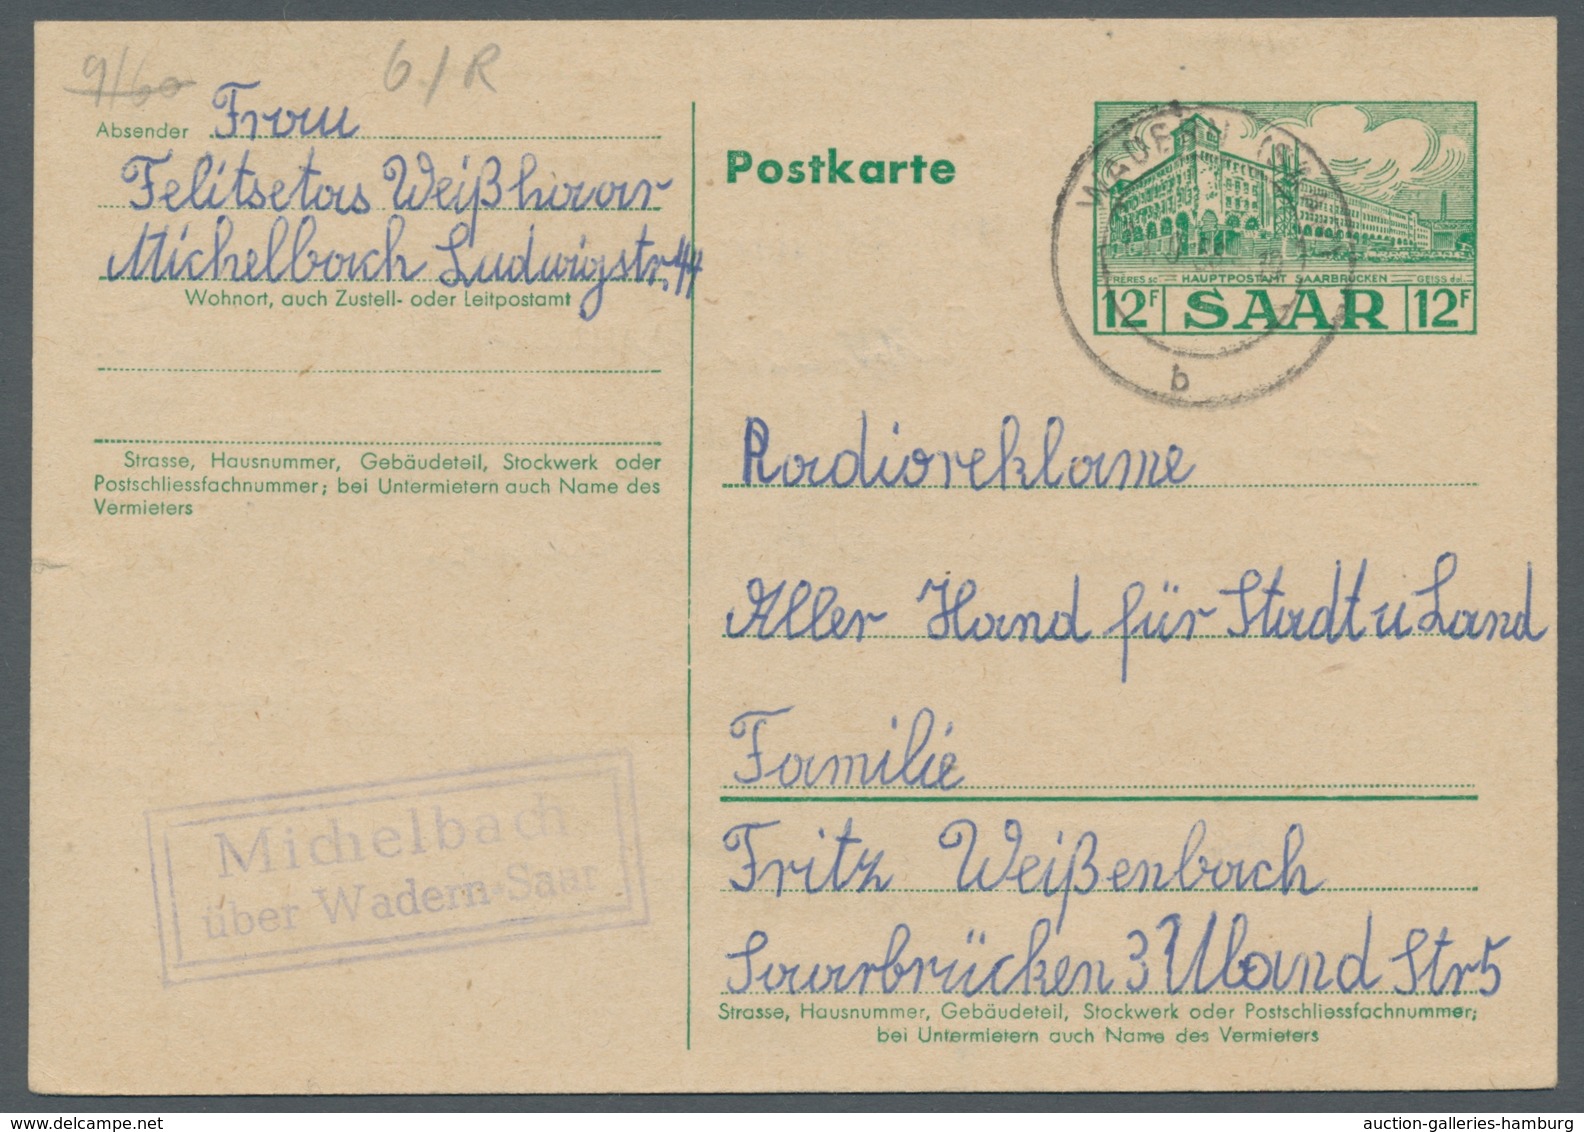 9/60
6./R
Absender Frau
Felitsetas Weißhaar
Michelbach Ludwigstr. 44
Wohnort, auch Zustell- oder Leitpostamt
Strasse, Hausnummer, Gebäudeteil, Stockwerk oder
Postschliessfachnummer; bei Untermietern auch Name des
Vermieters
Michelbach
über Wadern-Saar
Postkarte
WADERN
b
HAUPTPOSTAMT SAARBRÜCKEN
12F SAAR 12F
Radioreklame
Aller Hand für Stadt u Land
Familie
Fritz Weißenbach
Saarbrücken 3 Uland Str 5
Strasse, Hausnummer, Gebäudeteil, Stockwerk oder Postschliessfachnummer;
bei Untermietern auch Name des Vermieters
auction-galleries-hamburg